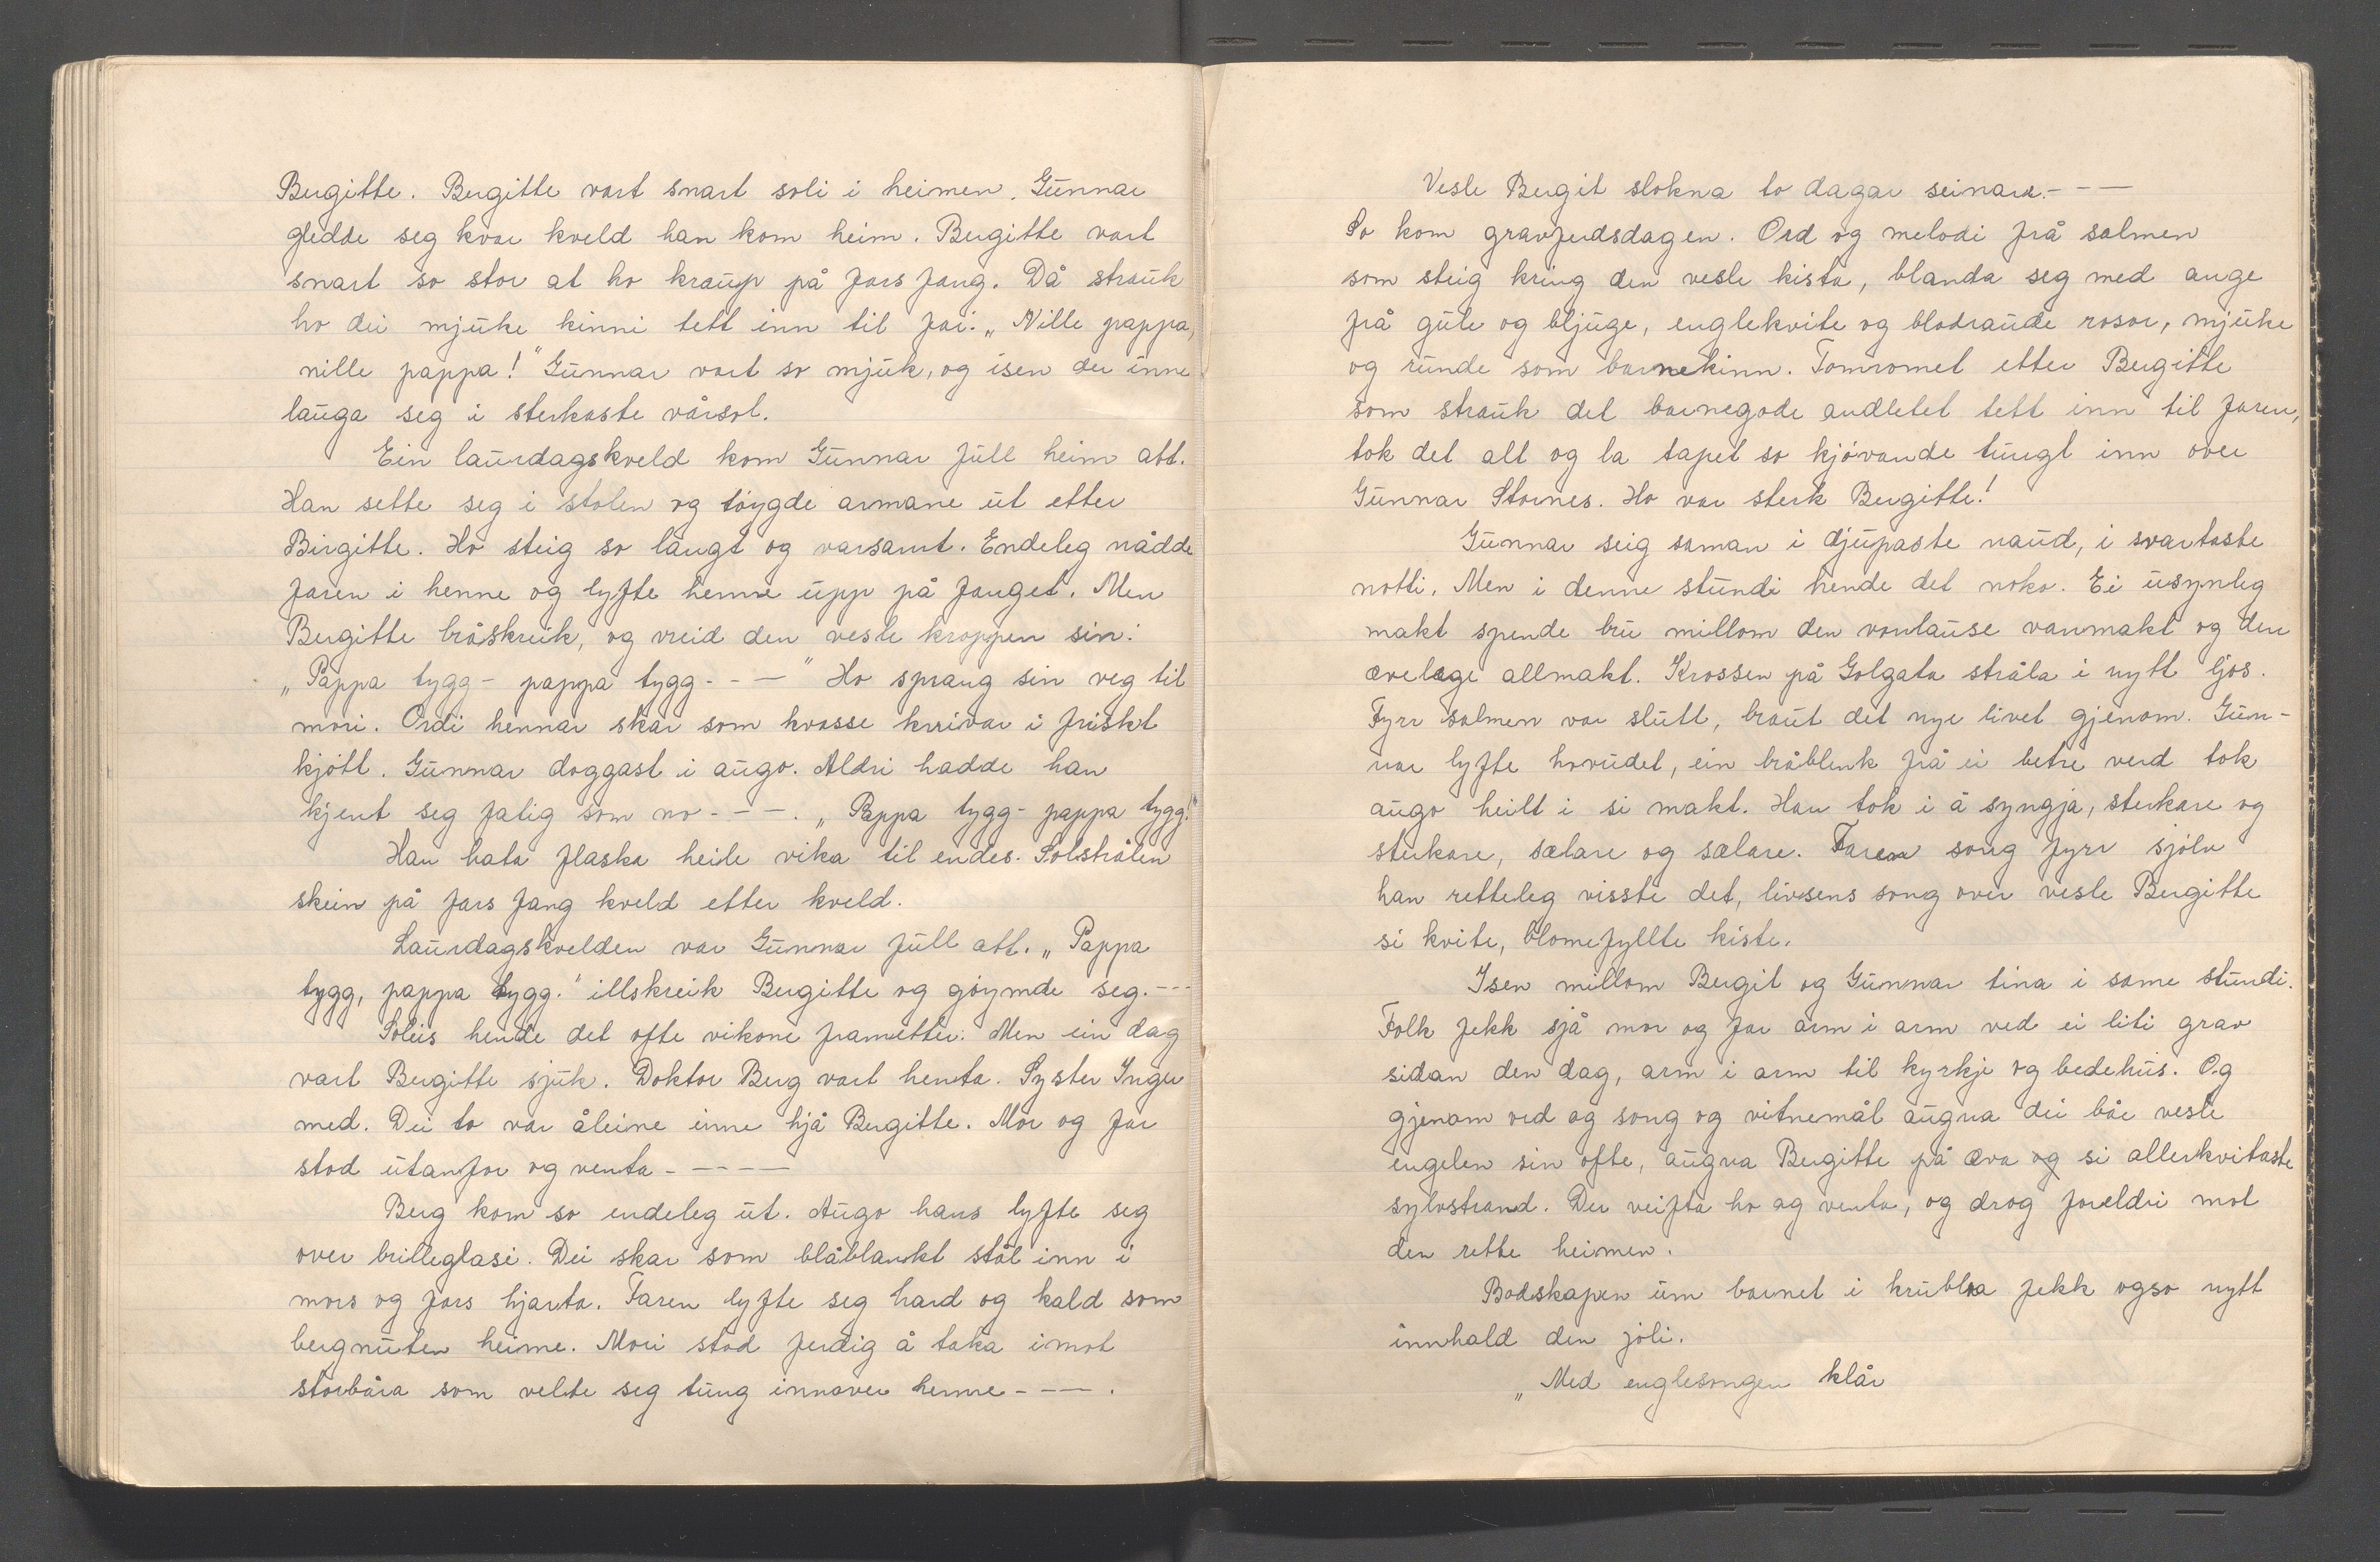 Bergitte. Bergitte vart snart soli i heimen. Gunnar
gledde seg kvar kveld han kom heim. Bergitte vart
snart so stor at ho kraup på fars fang. Då strauk
ho dei mjuke kinni tett inn til far: „Nille pappa,
nille pappa!" Gunnar vart so mjuk, og isen der inne
lauga seg i sterkaste vårsol.
Ein laurdagskveld kom Gunnar full heim att.
Han sette seg i stolen og tøygde armane ut etter
Birgitte. Ho steig so langt og varsamt. Endeleg nådde
faren i henne og lyfte henne upp på fanget. Men
Bergitte bråskreik, og vreid den vesle kroppen sin:
„Pappa tygg - pappa tygg - - —" Ho sprang sin veg til
mori. Ordi hennar skar som kvasse knivar i friskt
kjøtt. Gunnar doggast i augo. Aldri hadde han
kjent seg fatig som no - - —. „Pappa tygg - pappa tygg!"
Han hata flaska heile vika til endes. Solstrålen
skein på fars fang kveld etter kveld.
Laurdagskvelden var Gunnar full att. „Pappa
tygg, pappa tygg." illskreik Bergitte og gøymde seg. ---
Soleis hende det ofte vikone frametter. Men ein dag
vart Bergitte sjuk. Doktor Berg vart henta. Syster Inger
med. Dei to var åleine inne hjå Bergitte. Mor og far
stod utanfor og venta - - - — —
Berg kom so endeleg ut. Augo hans lyfte seg
over brilleglasi. Dei skar som blåblankt stål inn i
mors og fars hjarta. Faren lyfte seg hard og kald som
bergnuten heime. Mori stod ferdig å taka imot
storbåra som velte seg tung innover henne - - — .
Vesle Bergit slokna to dagar seinare. - - —
So kom gravferdsdagen. Ord og melodi frå salmen
som steig kring den vesle kista, blanda seg med ange
frå gule og bljuge, englekvite og blodraude rosor, mjuke
og runde som barnekinn. Tomromet etter Bergitte
som strauk det barnegode andletet tett inn til faren,
tok det alt og la tapet so kjøvande tungt inn over
Gunnar Stornes. Ho var sterk Bergitte!
Gunnar seig saman i djupaste naud, i svartaste
notti. Men i denne stundi hende det noko. Ei usynleg
makt spende bru millom den vonlause vanmakt og den
ævelege allmakt. Krossen på Golgata stråla i nytt ljos.
Fyrr salmen var slutt, braut det nye livet gjenom. Gun-
nar lyfte hovudet, ein bråblenk frå ei betre verd tok
augo heilt i si makt. Han tok i å syngja, sterkare og
sterkare, sælare og sælare. Faren song fyrr sjølv
han retteleg visste det, livsens song over vesle Bergitte
si kvite, blomefyllte kiste.
Isen millom Bergit og Gunnar tina i same stundi.
Folk fekk sjå mor og far arm i arm ved ei liti grav
sidan den dag, arm i arm til kyrkje og bedehus. Og
gjenom ord og song og vitnemål augna dei båe vesle
engelen sin ofte, augna Bergitte på æva og si allerkvitaste
sylvstrand. Der veifta ho og venta, og drog foreldri mot
den rette heimen.
Bodskapen um barnet i krubba fekk ogso nytt
innhald den joli.
„Med englesongen klår